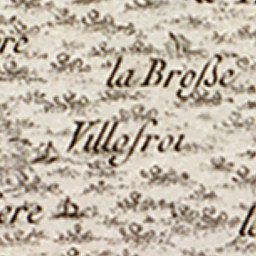 re
la Broße
Villefroi
ere